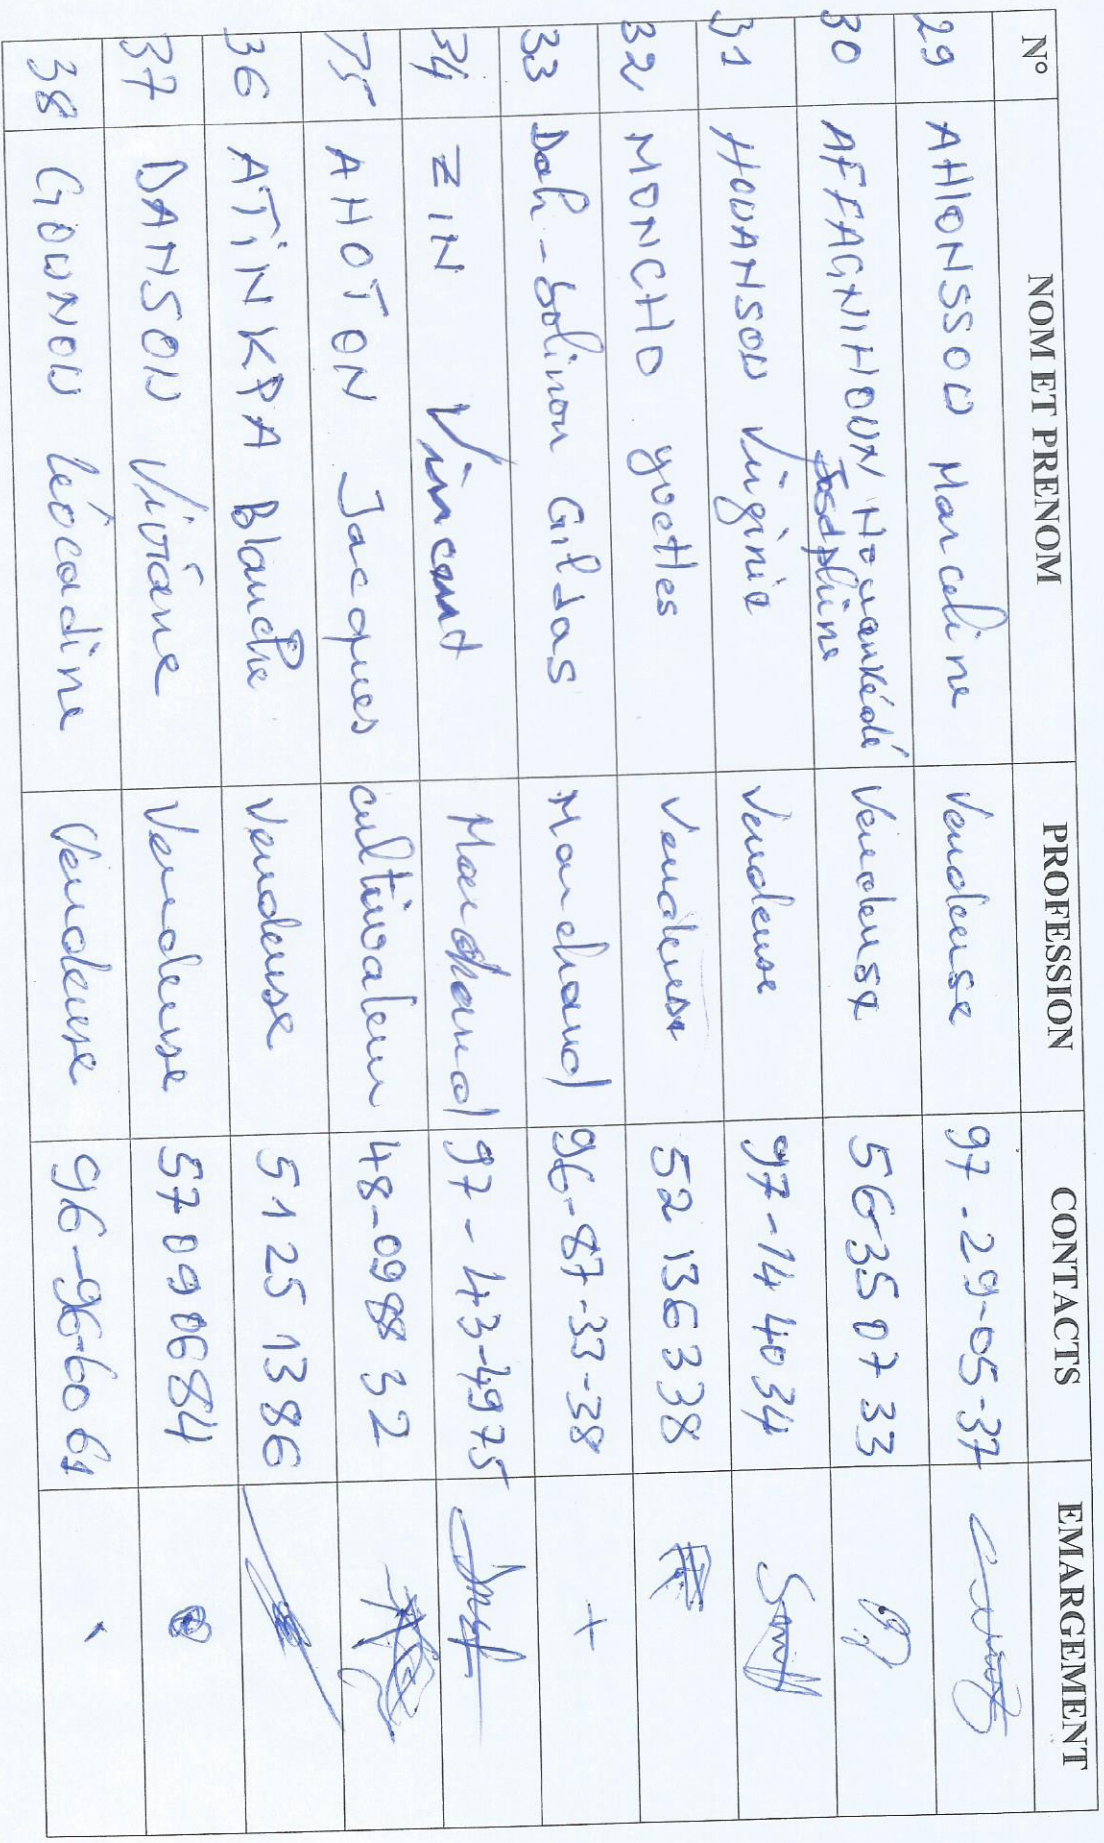 N° NOM ET PRENOM PROFESSION CONTACTS EMARGEMENT
29 AHIONSSOU Marceline Vendeuse 97-29-05-37
30 AFFAGNIHOUN Vendeuse 56 35 07 33
Josephine
31 HOUANSOU Virginie Vendeuse 97-14 40 34
32 MONCHO yvettes Vendeuse 52 13 63 38
33 Dah-Bolinon Gildas Marchand 96-87-33-38
34 ZIN Vincent Marchand 97-43-4975
35 AHOTON Jacques cultivateur 48-0988 32
36 ATiNKPA Blanche Vendeuse 51 25 13 86
37 DANSOU Viviane Vendeuse 57 09 06 84
38 GOUNOU léocadine Vendeuse 96-96-60 61